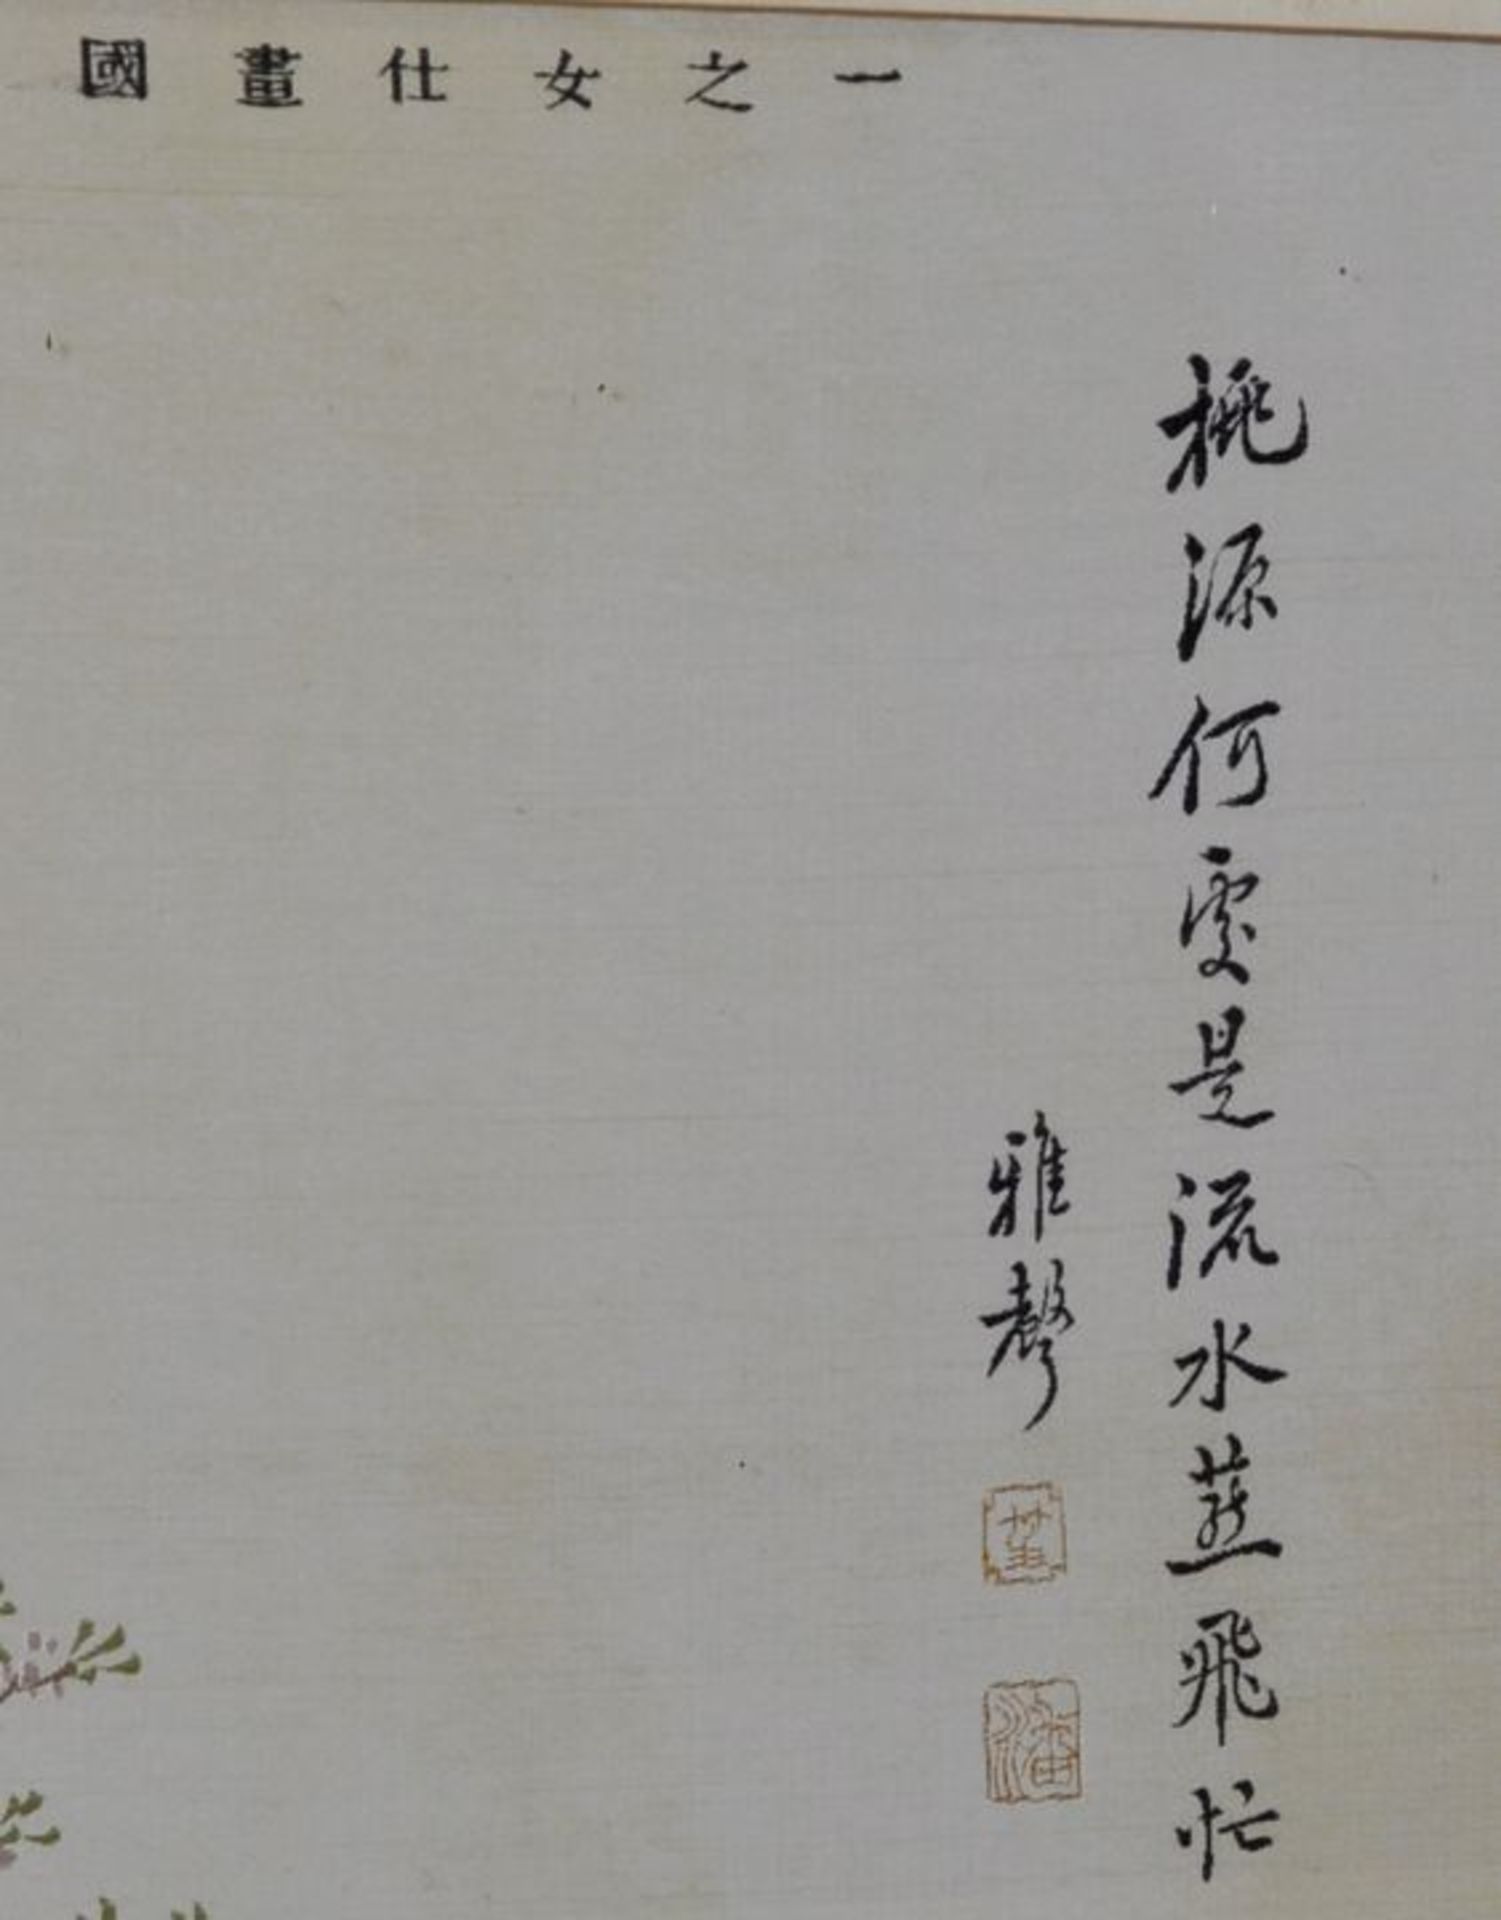 國畫仕女之一
桃源何處是流水燕飛忙
雅聲